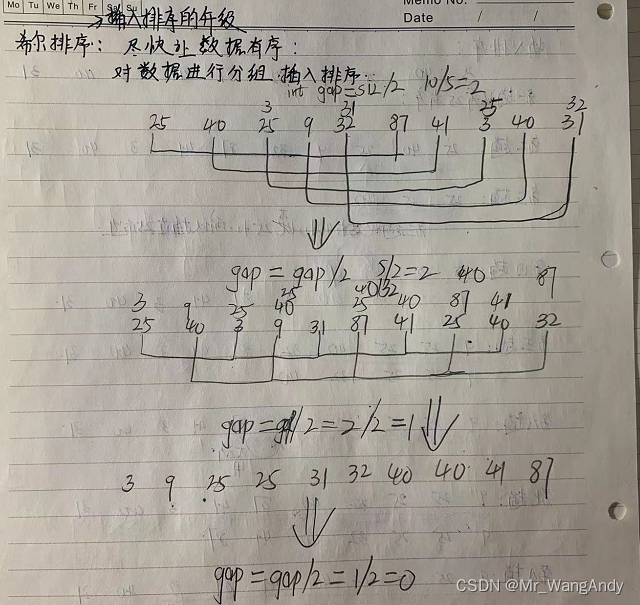 Mo Tu We Th Fr Sa Su
Memo No.
Date / /
→插入排序的升级
希尔排序: 尽快让数据有序:
对数据进行分组.插入排序.
int gap=siz/2 10/5=2
3 31 25 32
25 40 25 9 32 87 41 3 40 31
gap = gap/2 5/2=2 40 87
25 40 32
3 9 25 40 25 40 87 41
25 40 3 9 31 87 41 25 40 32
gap = /2 = 2/2 = 1
3 9 25 25 31 32 40 40 41 87
gap = gap/2 = 1/2 = 0
CSDN @Mr_WangAndy